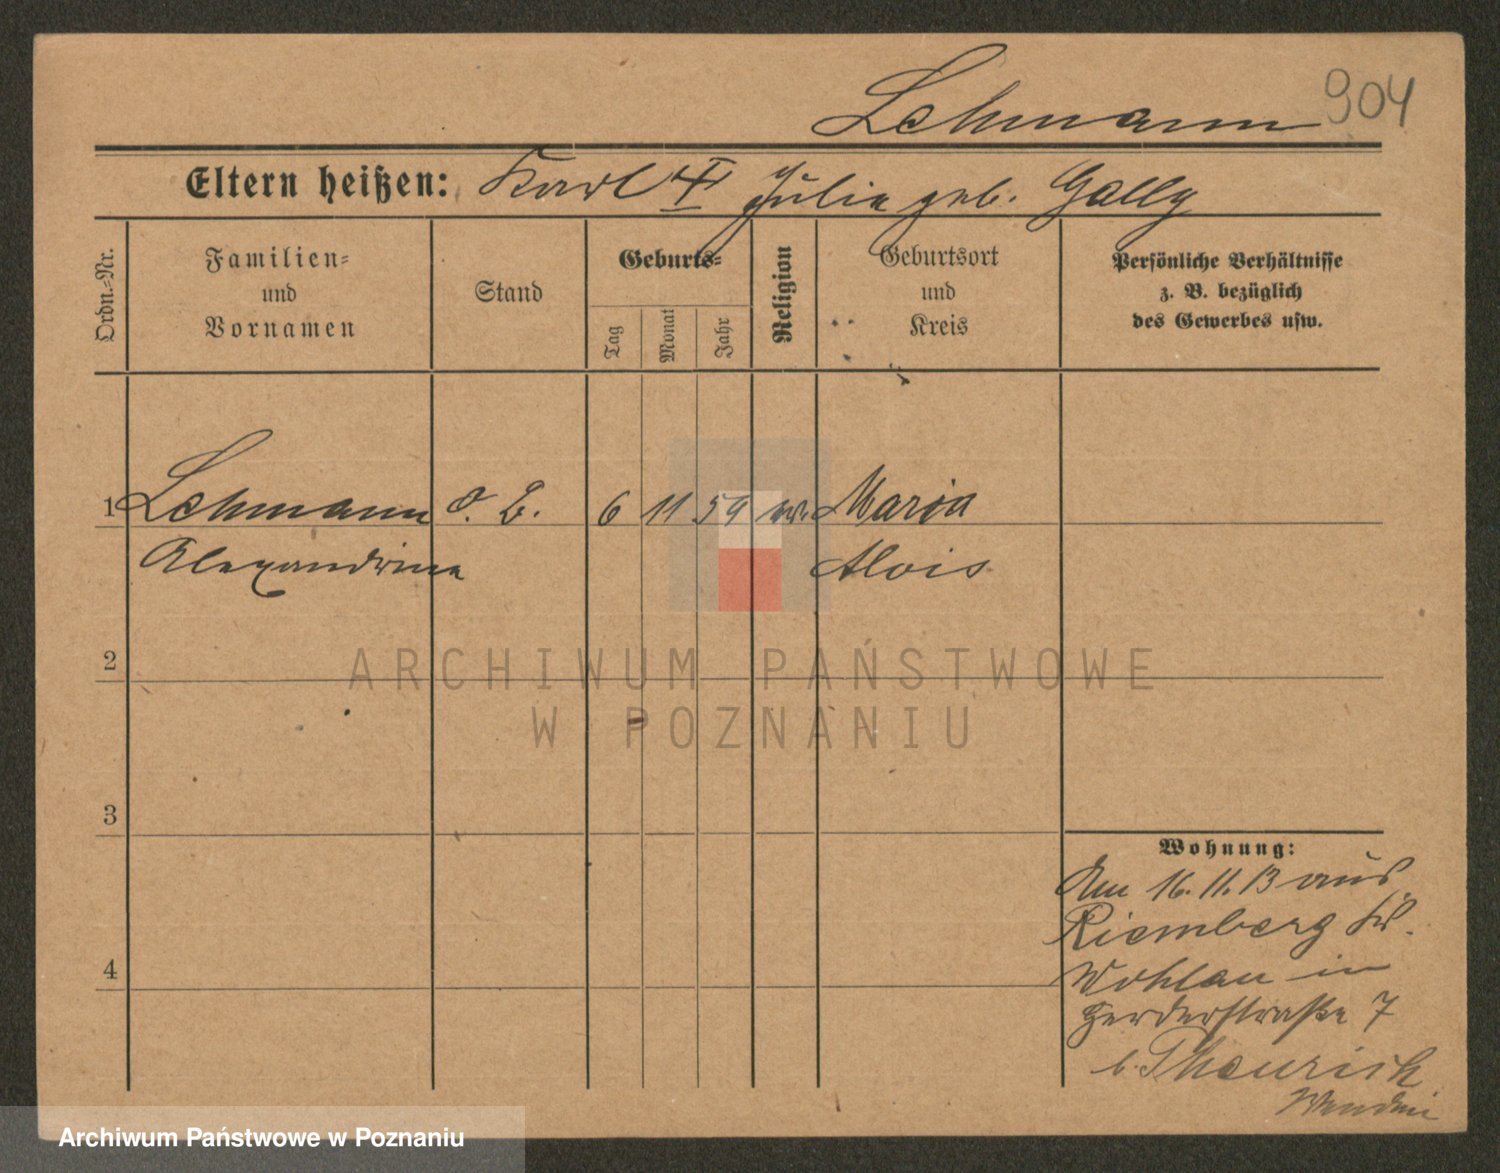 Lehmann 904
Eltern heißen: Karl I Julia geb. Gally
Ordn.-Nr.
Familien- und Vornamen
Stand
Geburts-
Tag
Monat
Jahr
Religion
Geburtsort und Kreis
Persönliche Verhältnisse
z. B. bezüglich
des Gewerbes usw.
1 Lehmann o. B. 6 11 59 Maria
Alexandrine Alois
2
ARCHIWUM PAŃSTWOWE
W POZNANIU
3
Wohnung:
Am 16.11.13 aus
Riemberg Kr.
Wohlau in
Herderstraße 7
b. Theurich
4
Archiwum Państwowe w Poznaniu